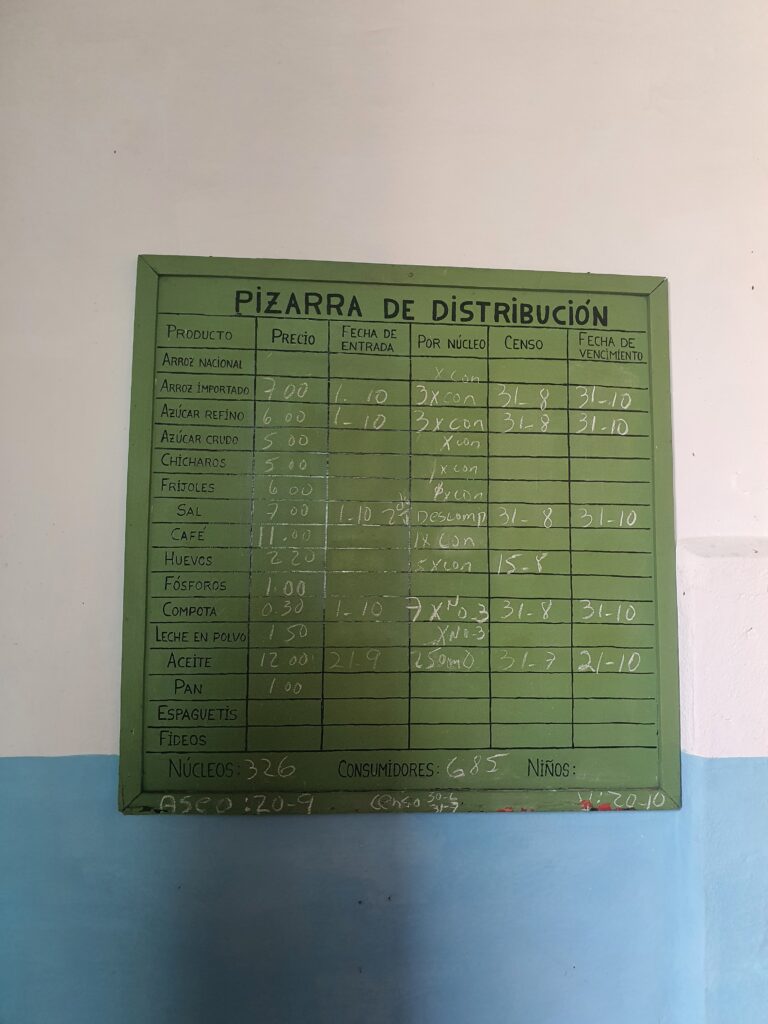 PIZARRA DE DISTRIBUCIÓN
PRODUCTO PRECIO FECHA DE ENTRADA POR NÚCLEO CENSO FECHA DE VENCIMIENTO
ARROZ NACIONAL X con
ARROZ IMPORTADO 7 00 1-10 3X con 31-8 31-10
AZÚCAR REFINO 6 00 1-10 3X con 31-8 31-10
AZÚCAR CRUDO 5 00 X con
CHICHAROS 5 00 1X con
FRIJOLES 6 00 X con
SAL 7 00 1-10 Descomp 31-8 31-10
CAFÉ 11.00 1X con
HUEVOS 2 20 5X con 15-8
FÓSFOROS 1.00
COMPOTA 0.30 1-10 7 X No-3 31-8 31-10
LECHE EN POLVO 1 50 X No-3
ACEITE 12 00 21-9 250ml 31-7 21-10
PAN 1.00
ESPAGUETIS
FIDEOS
NÚCLEOS: 326 CONSUMIDORES: 685 NIÑOS:
Aseo: 20-9 Censo V: 20-10